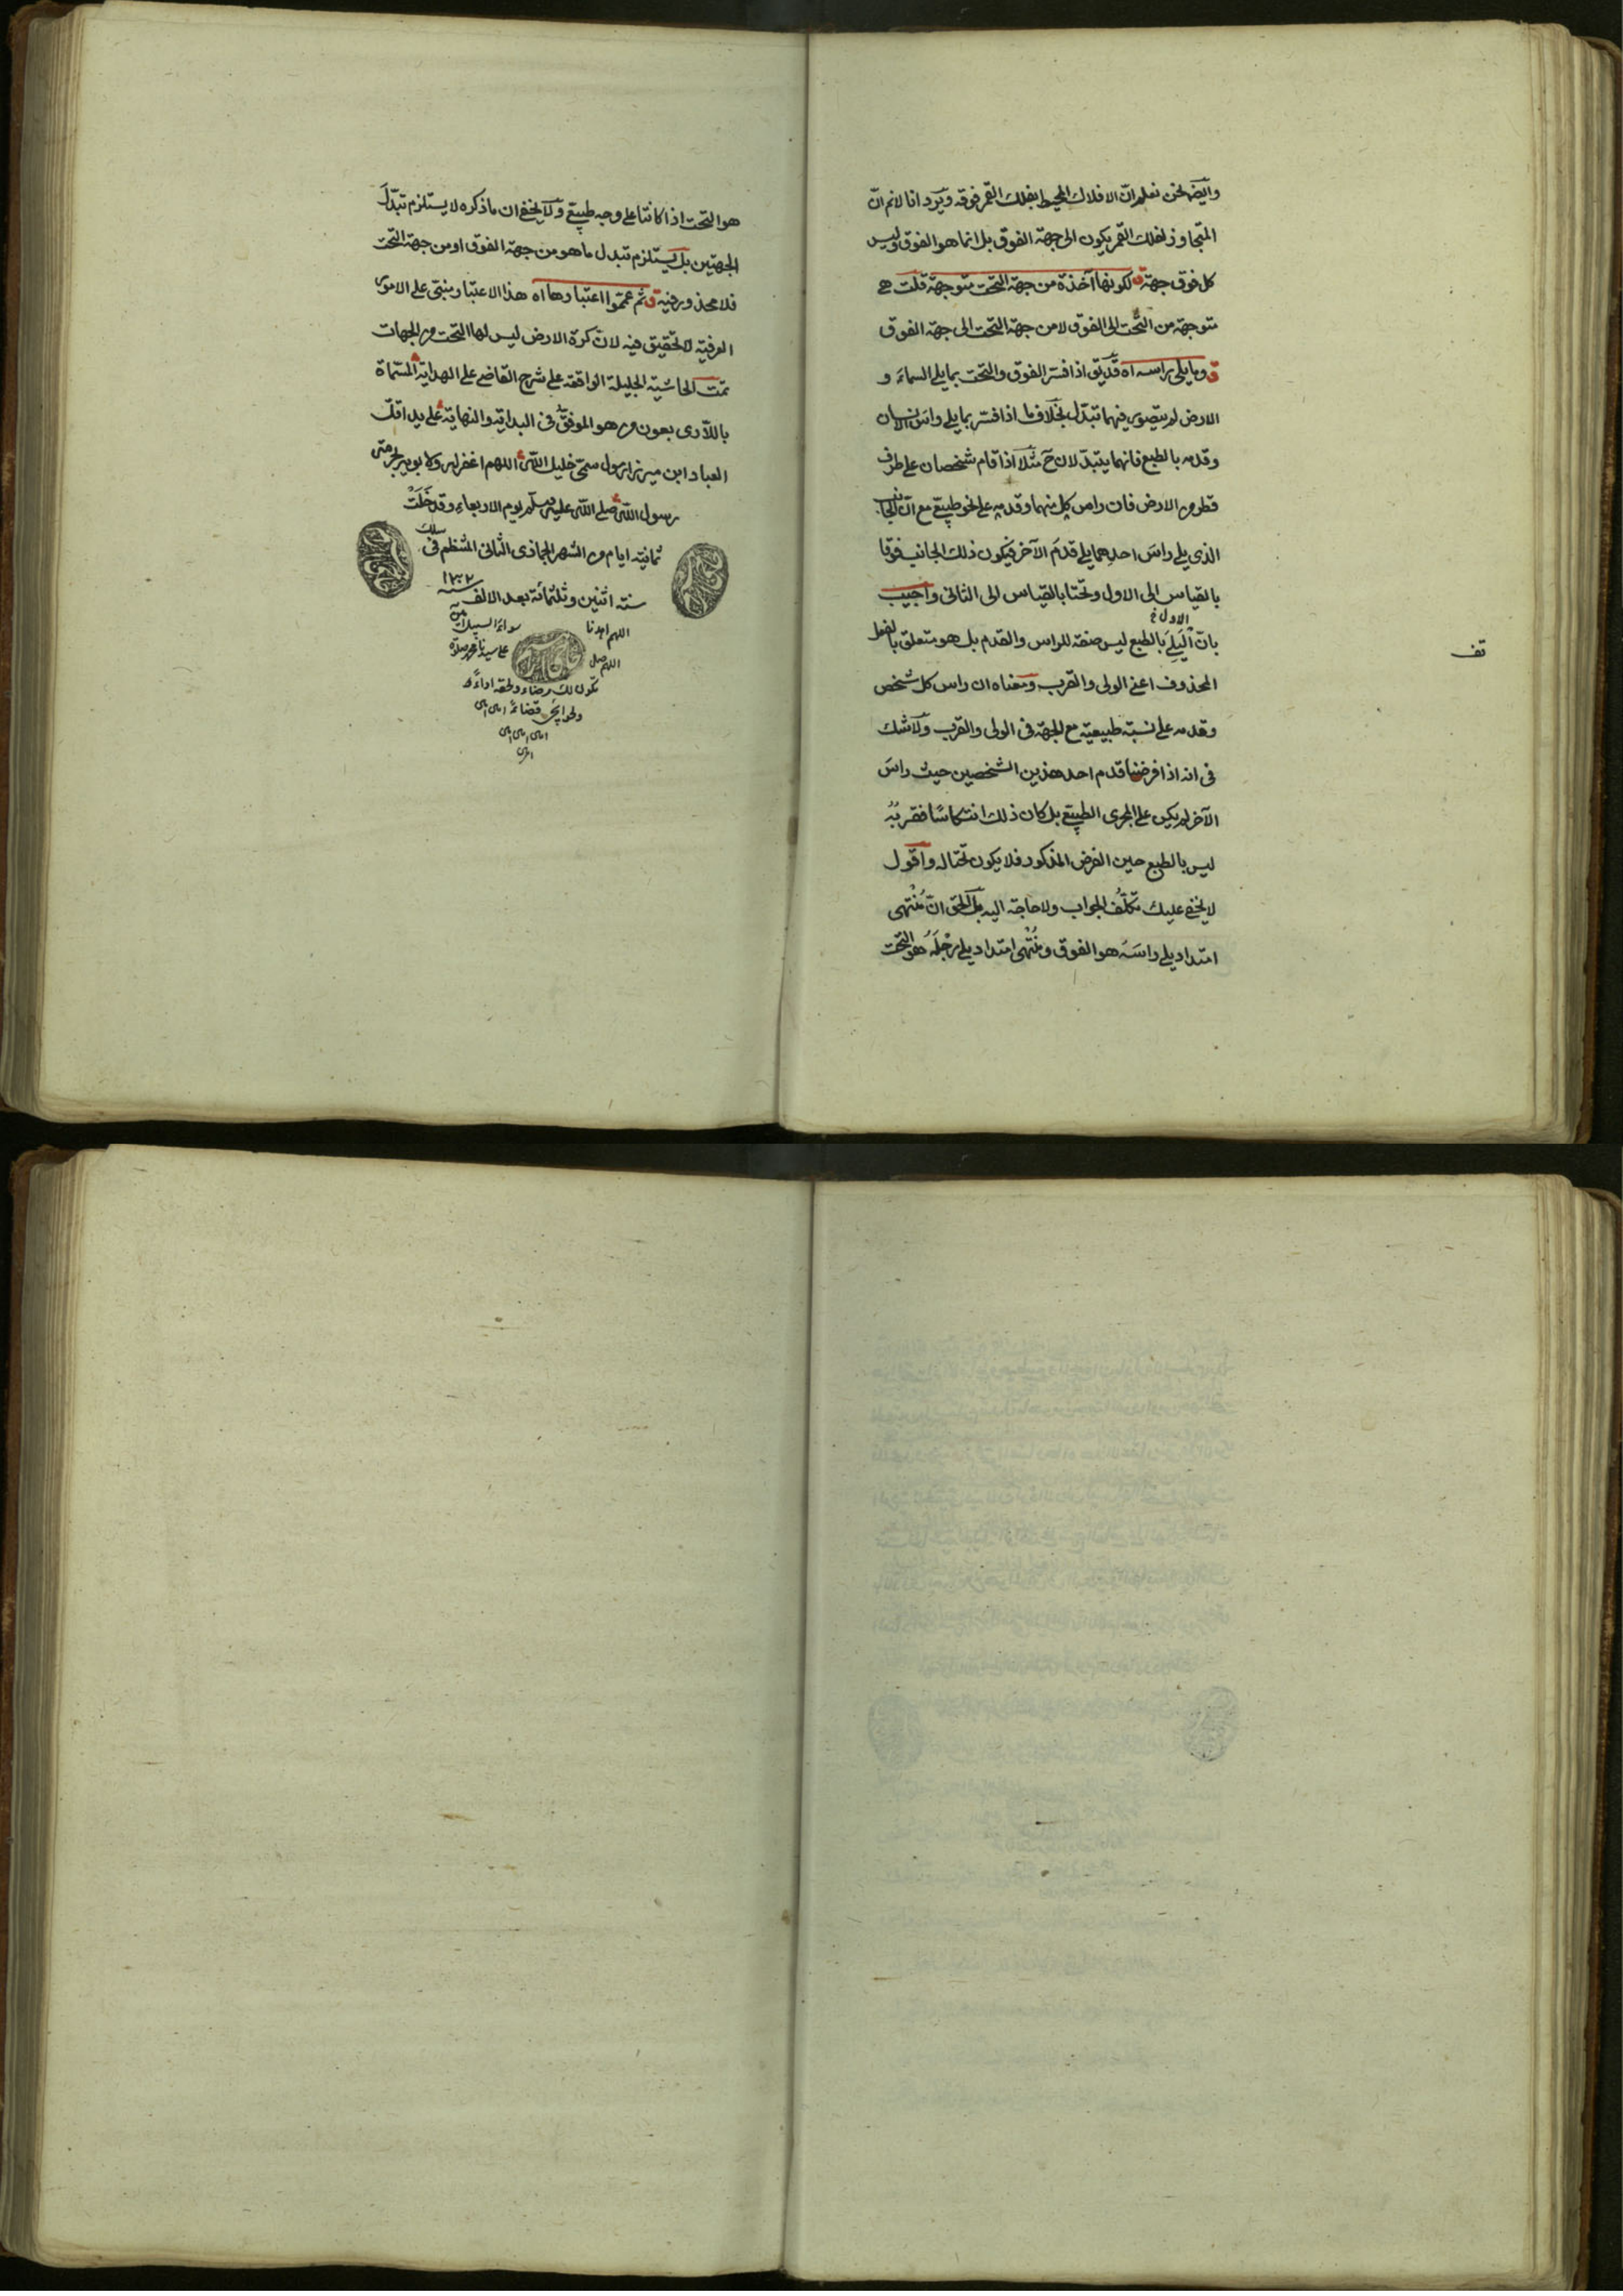 وايض نحن نعلم ان الافلاك المحيط بفلك القمر فوقه ويرد انا لا نم ان
المتجاوز لفلك القمر يكون الى جهة الفوق بل انما هو الفوق وليس
كل فوق جهة ق لكونها آخذة من جهة التحت متوجهة قلت هي
متوجهة من التحت الى الفوق لا من جهة التحت الى جهة الفوق
ق وما يلى راسه اه قد يق اذا فسر الفوق والتحت بما يلى السماء و
الارض لم يتصور فيهما تبدل بخلاف ما اذا فسر بما يلى راس الانسان
وقدمه بالطبع فانهما يتبدلان ح مثلا اذا قام شخصان على طرف
قطر من الارض فان راس كل منهما وقدمه على نحو طبيعى مع ان الجانب
الذى يلى راس احدهما يلى قدم الآخر فيكون ذلك الجانب فوقا
بالقياس الى الاول وتحتا بالقياس الى الثانى واجيب
بان اليلى بالطبع ليس صفة للراس والقدم بل هو متعلق بالفعل
المحذوف اعنى الولى والقرب ومعناه ان راس كل شخص
وقدمه على نسبة طبيعية مع الجهة فى الولى والقرب ولا شك
فى انه اذا فرضنا قدم احد هذين الشخصين حيث راس
الآخر لم يكن على المجرى الطبيعى بل كان ذلك انتكاسًا فقربُهُ
ليس بالطبع حين الفرض المذكور فلا يكون تحتا له واقول
لا يخفى عليك تكلّف الجواب ولا حاجة اليه بل الحق ان مُنْتهى
امتداد يلى راسَهُ هو الفوق ومُنْتهى امتداد يلى رِجْلَهُ هو التحت
هو التحت اذا كانتا على وجه طبيعى ولا يخفى ان ما ذكره لا يستلزم تبدّلَ
الجهتين بل يستلزم تبدل ما هو من جهة الفوق او من جهة التحت
فلا محذور فيه ق ثم عمّموا اعتبارها اه هذا الاعتبار مبنى على الامور
العرفية لا تحقيق فيه لان كرة الارض ليس لها التحت من الجهات
تمت الحاشية الجليلة الواقعة على شرح القاضى على الهداية المسمّاة
باللّارى بعون من هو الموفق فى البداية والنهاية على يد اقلّ
العباد ابن ميرزا رسول سمّى خليل الله اللهم اغفر له ولابويه بحرمة
رسول الله صلى الله عليه وسلم يوم الاربعاء وقد خَلَتْ
ثمانية ايام من الشهر الجماذى الثانى المنتظم فى سلك
سنة اثنين وثلثمائة بعد الالف سنه ١٣٠٢
اللهم اهدنا سواء السبيل
اللهم صل على سيدنا محمد صلاة
تكون لك رضاء ولحقه اداءً و
ولحوائجى قضاءً